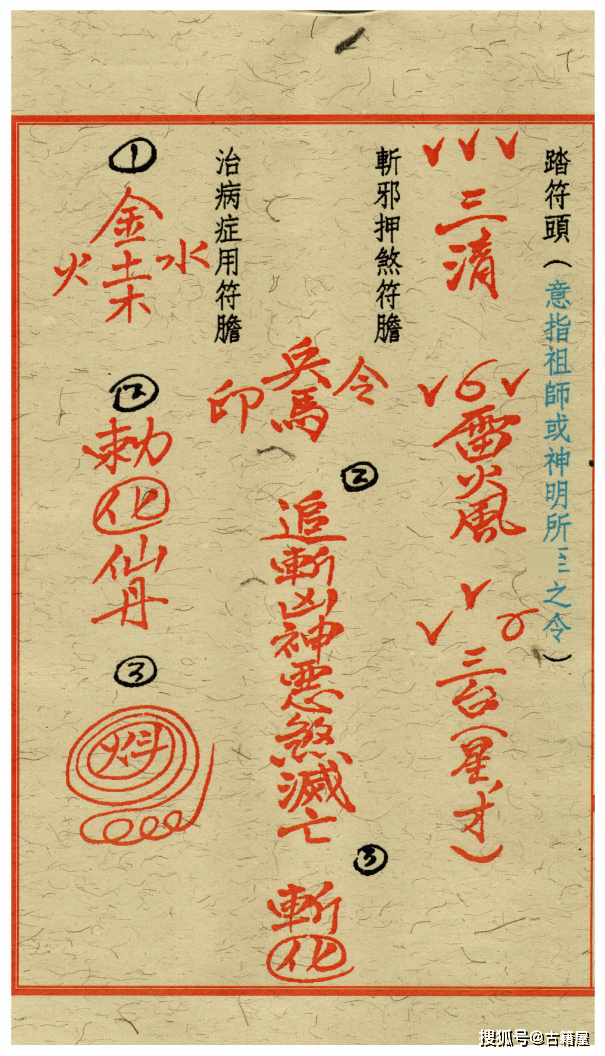 踏符頭(意指祖師或神明所之令)
三清
雷火風
三台(星才)
斬邪押煞符膽
令
兵馬
印
②
追斬凶神悪煞滅亡
③
斬化
治病症用符膽
①
金
水
土木
火
②
勅化仙丹
③
搜狐号@古籍屋